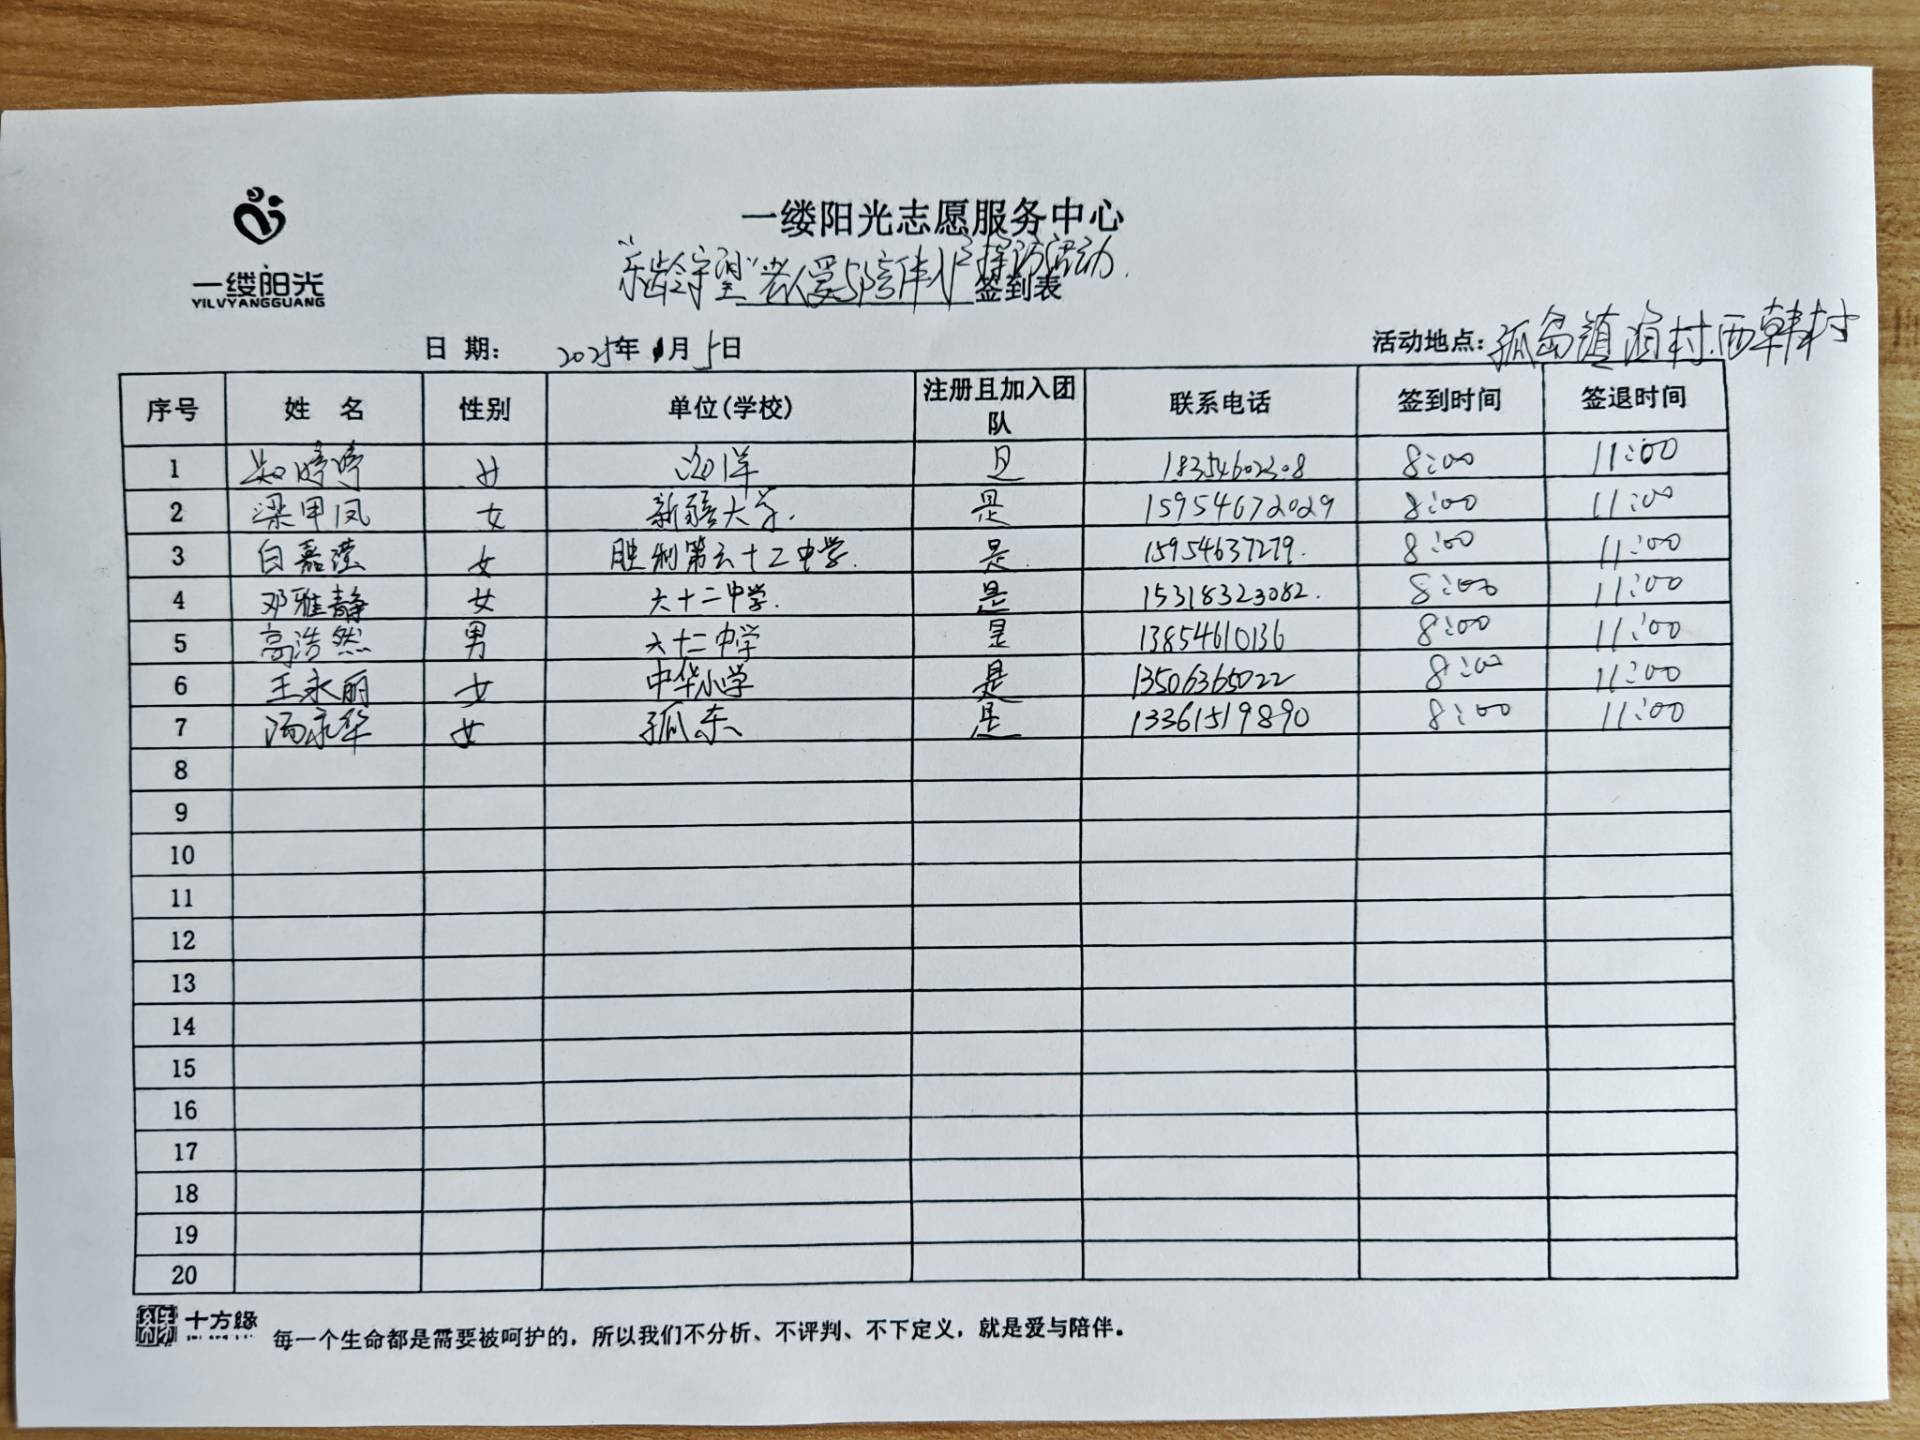 一缕阳光
YILVYANGGUANG
一缕阳光志愿服务中心
"乐龄守望"老人爱与陪伴 探访活动.
签到表
日 期: 2025年1月5日
活动地点: 孤岛镇渔村.西韩村
序号 姓 名 性别 单位(学校) 注册且加入团队 联系电话 签到时间 签退时间
1 婷婷 女 海洋 是 18354602308 8:00 11:00
2 梁甲凤 女 新疆大学. 是 15954672029 8:00 11:00
3 白嘉滢 女 胜利第六十二中学. 是. 15954637279. 8:00 11:00
4 邓雅静 女 六十二中学. 是 15318323082. 8:00 11:00
5 高浩然 男 六十二中学 是 13854610136 8:00 11:00
6 王永丽 女 中华小学 是 13506365022 8:00 11:00
7 汤永华 女 孤东 是 13361519890 8:00 11:00
8
9
10
11
12
13
14
15
16
17
18
19
20
十方缘
每一个生命都是需要被呵护的，所以我们不分析、不评判、不下定义，就是爱与陪伴。